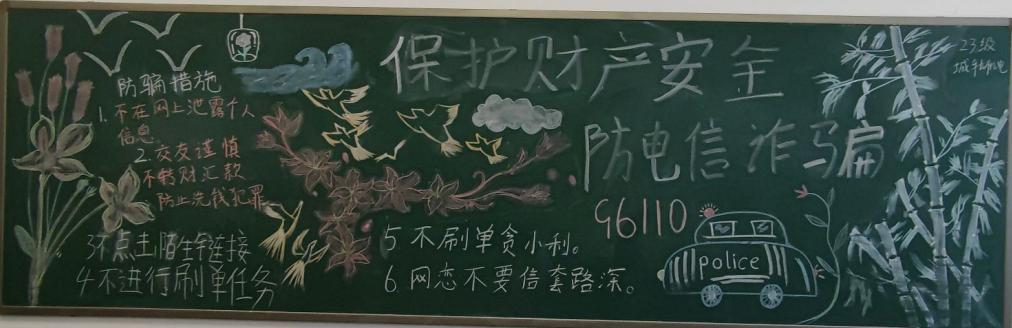 保护财产安全
防电信诈骗
96110
police
23级
防骗措施
1.不在网上泄露个人
信息
2.交友谨慎
不转财汇款
防止洗钱犯罪
3不点击陌生链接
4不进行刷单任务
5 不刷单贪小利。
6.网恋不要信套路深。